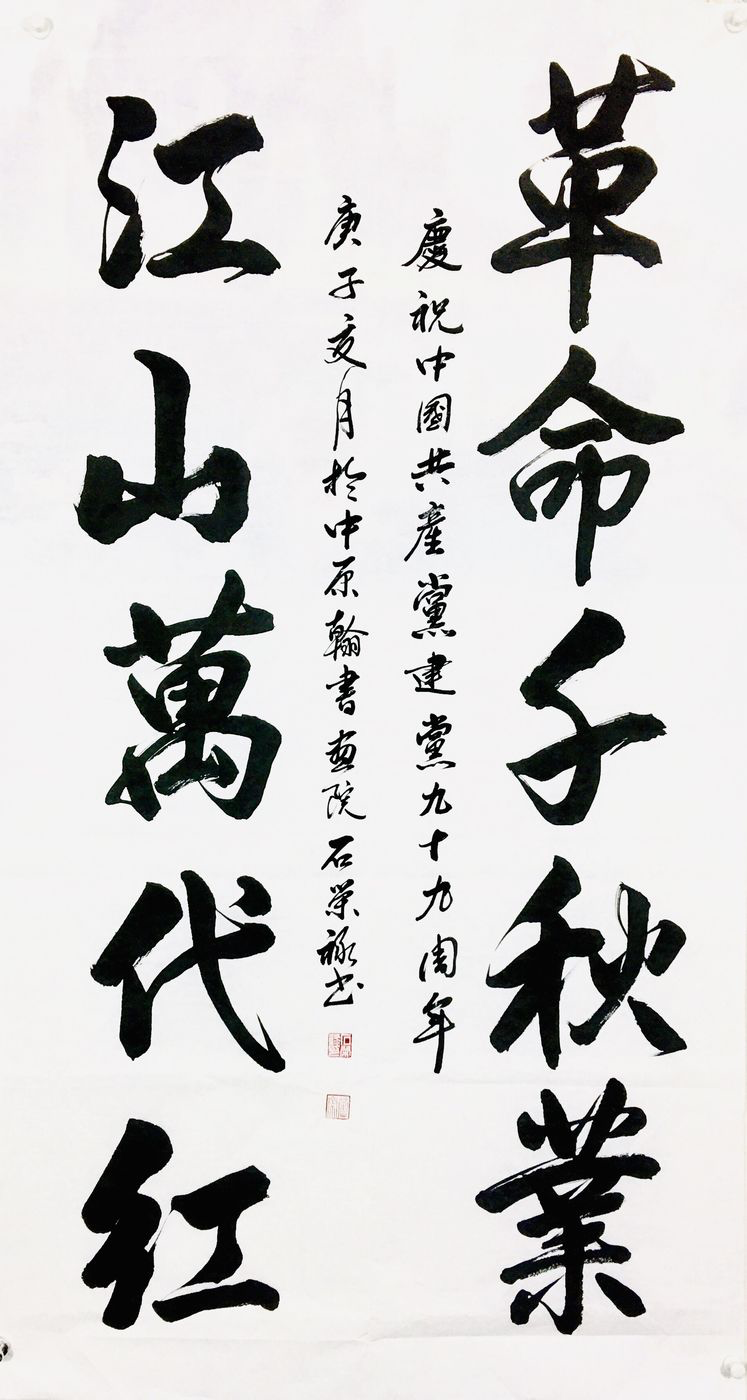 革命千秋業
慶祝中國共產黨建黨九十九周年
庚子夏月於中原翰書画院石榮祿书
江山萬代红